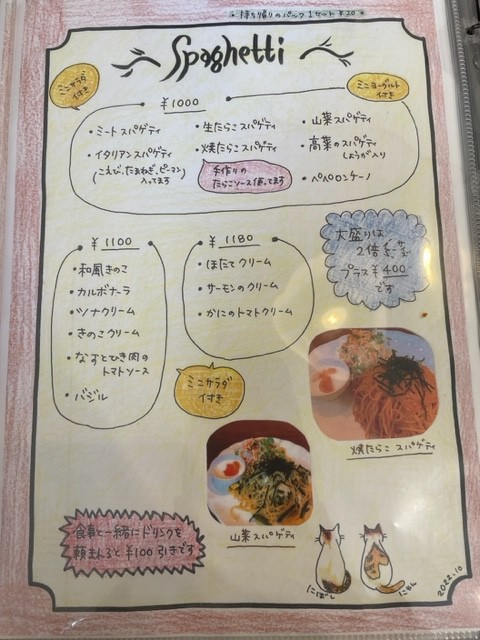 * 持ち帰りのパック1セット ¥20 *
Spaghetti
ミニサラダ
付き
ミニヨーグルト
付き
¥1000
・ミートスパゲティ
・イタリアンスパゲティ
(こえび、たまねぎ、ピーマン
入ってます)
・生たらこスパゲティ
・焼たらこスパゲティ
手作りの
たらこソース使ってます
・山菜スパゲティ
・高菜のスパゲティ
しょうが入り
・ペペロンチーノ
¥1100
・和風きのこ
・カルボナーラ
・ツナクリーム
・きのこクリーム
・なすとひき肉の
トマトソース
・バジル
¥1180
・ほたてクリーム
・サーモンのクリーム
・かにのトマトクリーム
ミニサラダ
付き
大盛りは
2倍
プラス¥400
です
焼たらこ スパゲティ
山菜スパゲティ
食事と一緒にドリンクを
頼まれると¥100引きです
にぼし
2022.10